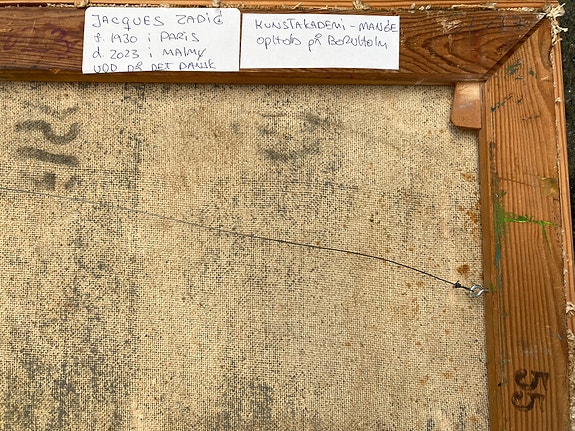 JACQUES ZADIG
f. 1930 i PARIS
d. 2023 i MALMø
UDD PÅ DET DANSK
KUNSTAKADEMI - MANGE
opltob på BORNHOLM
55